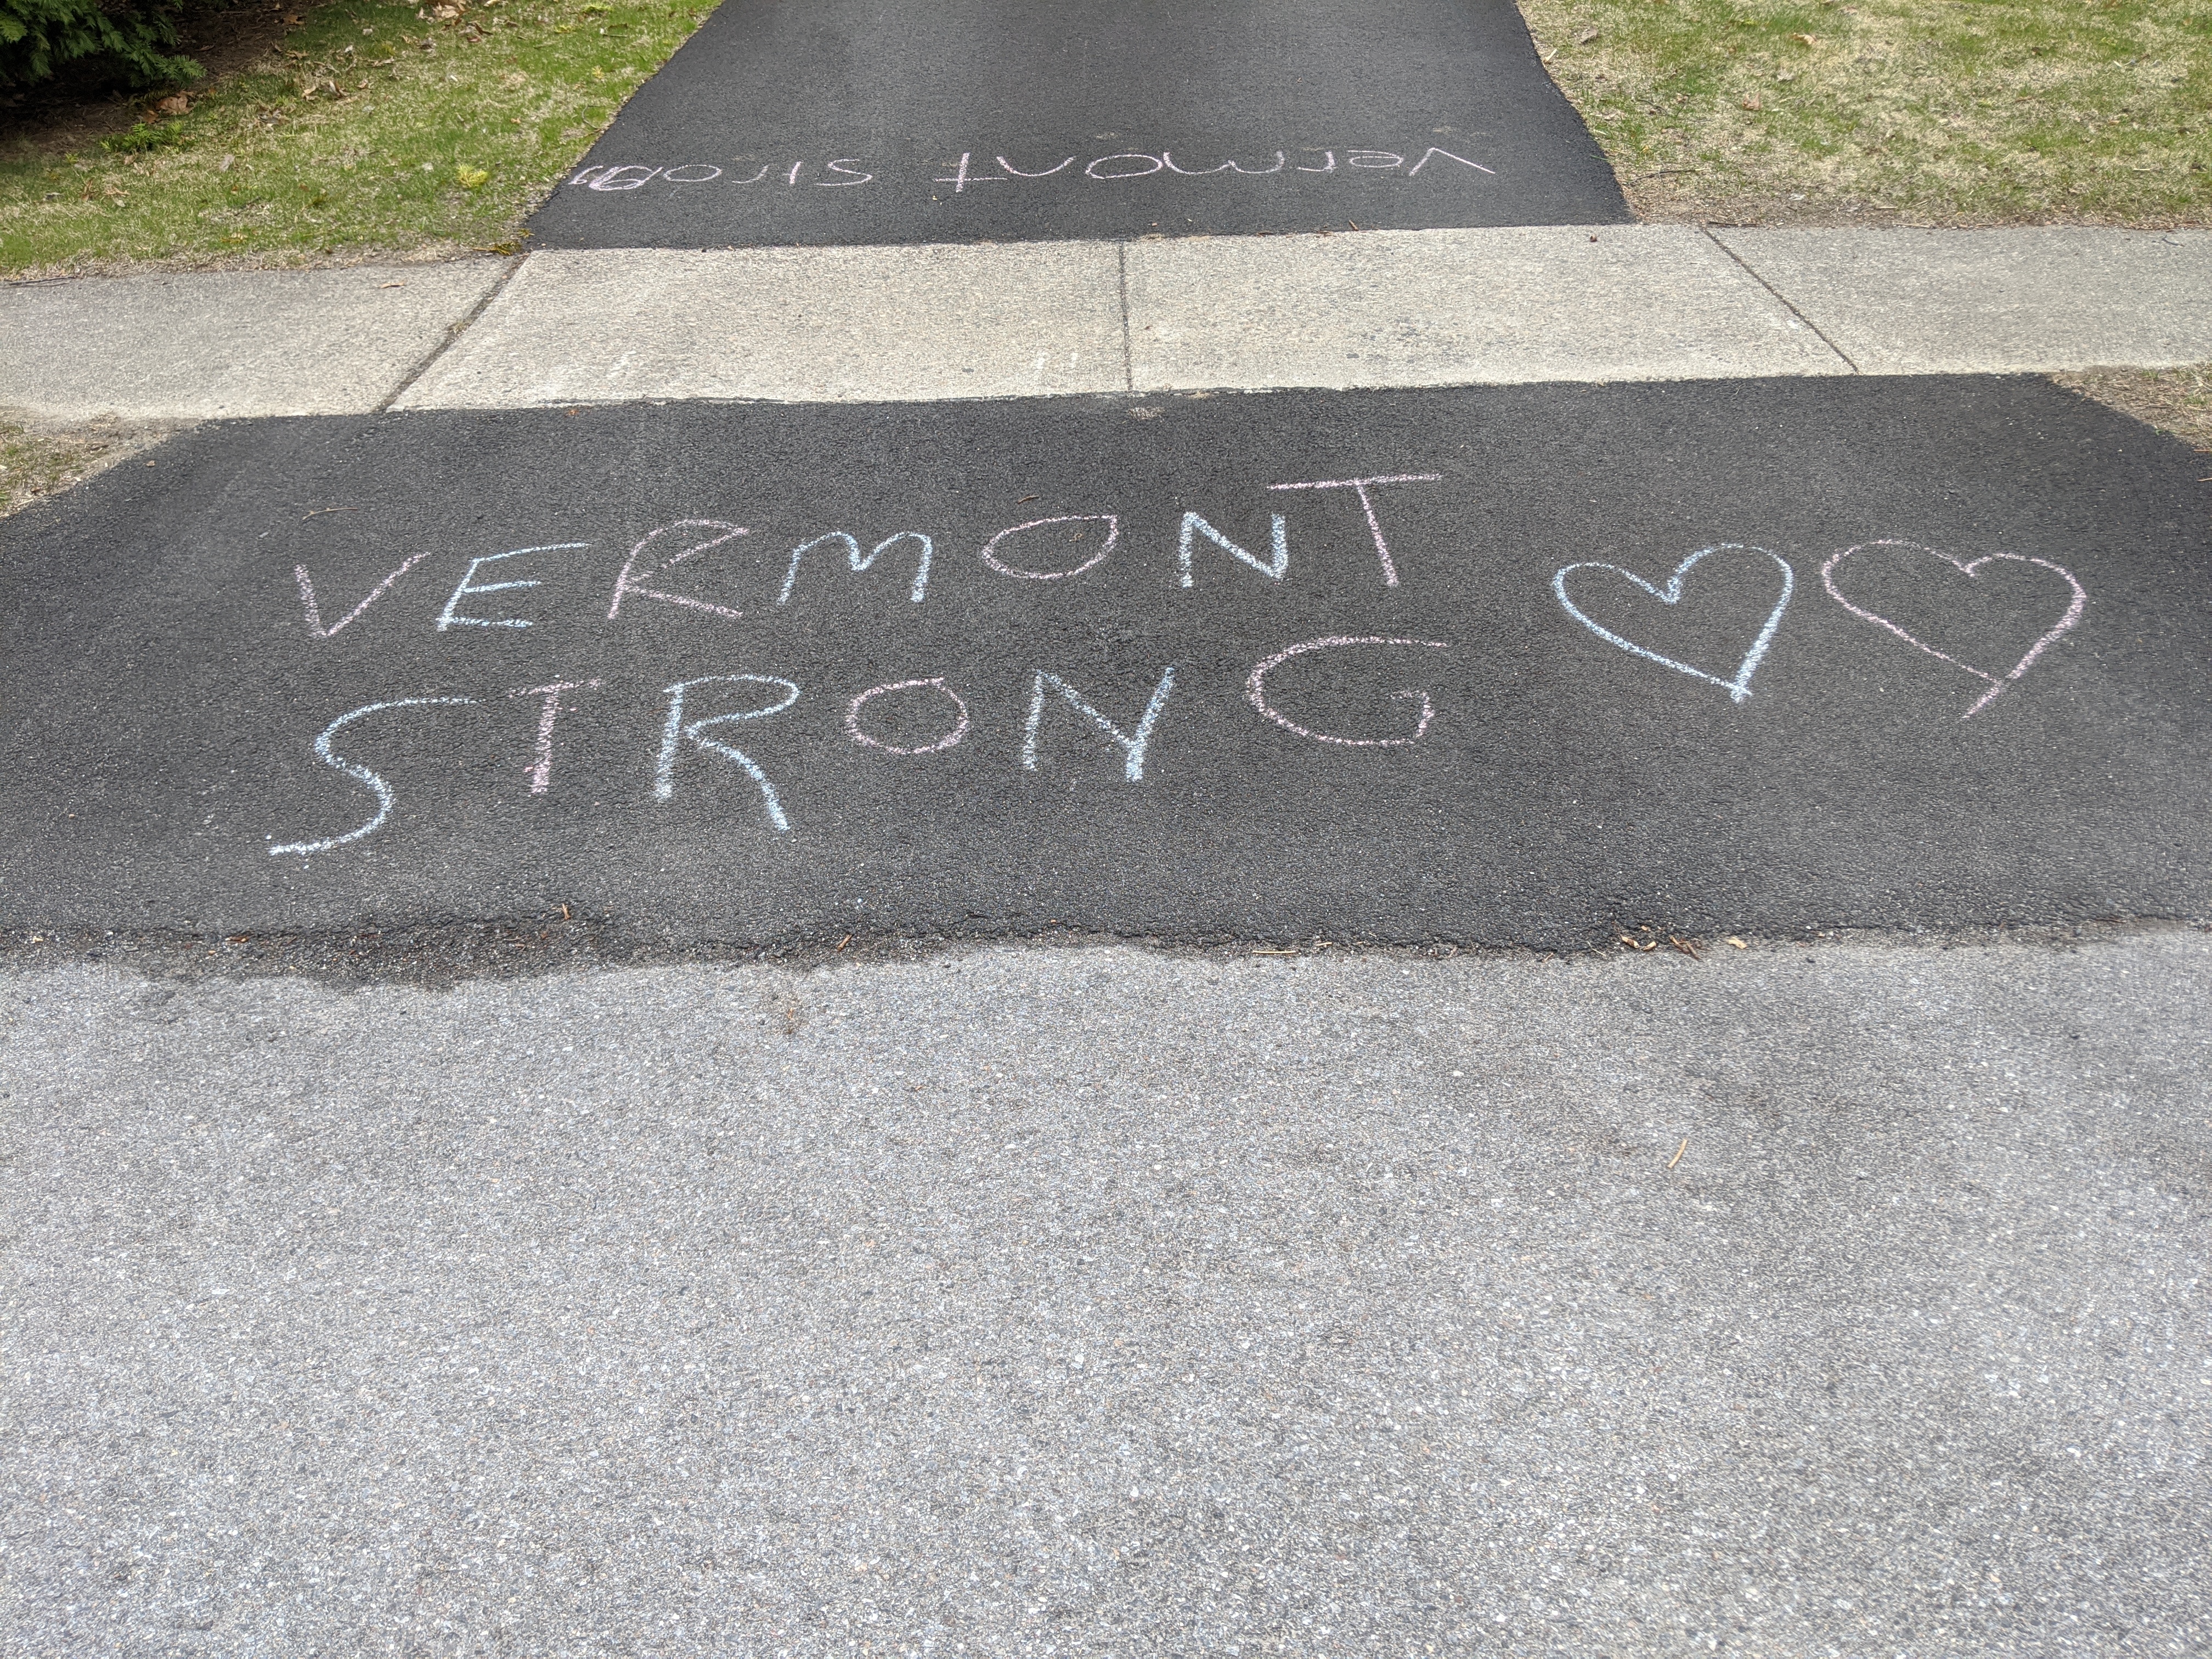 Vermont Strong
VERMONT
STRONG